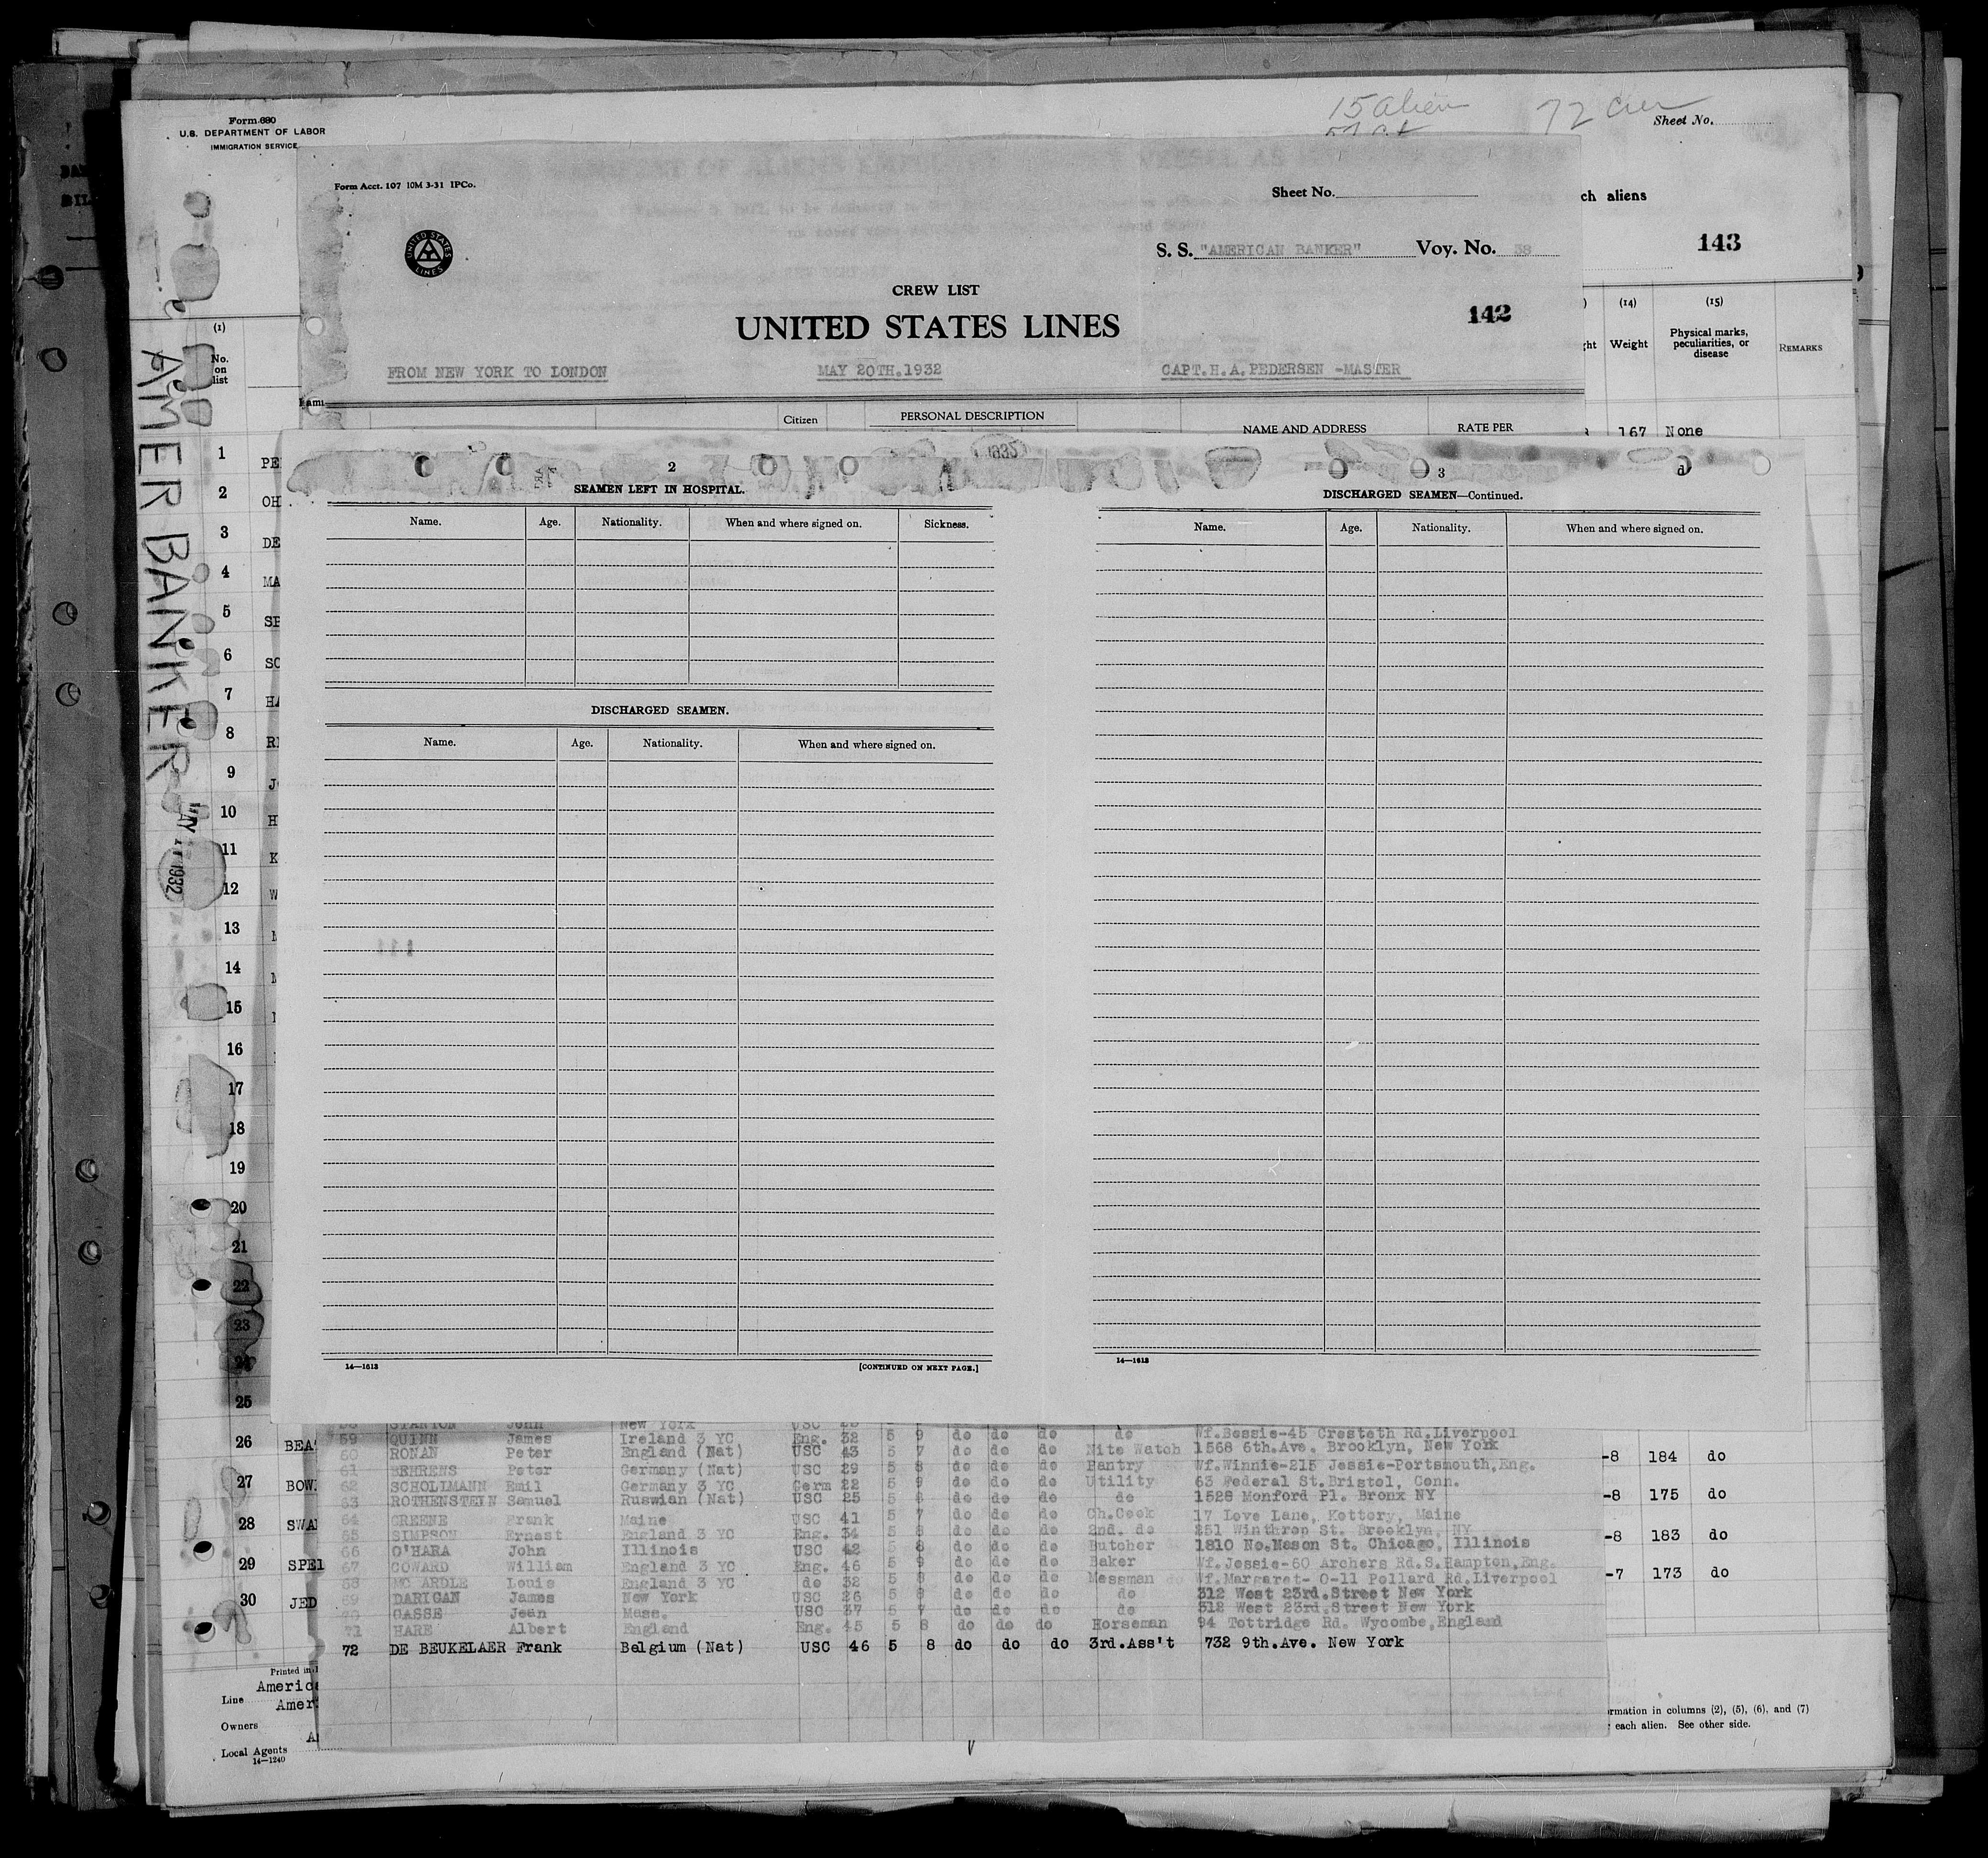 Form 680
U.S. DEPARTMENT OF LABOR
IMMIGRATION SERVICE
15 alien
72 crew
Sheet No.
ch aliens
143
Form Acct. 107 10M 3-31 IPCo.
Sheet No.
UNITED STATES LINES
S. S. "AMERICAN BANKER" Voy. No. 38
CREW LIST
UNITED STATES LINES
142
FROM NEW YORK TO LONDON MAY 20TH.1932 CAPT.H.A.PEDERSEN -MASTER
Citizen PERSONAL DESCRIPTION NAME AND ADDRESS RATE PER
(1)
No. on list
(14) (15)
ght Weight Physical marks, peculiarities, or disease REMARKS
167 None
AMER BANKER
MAY 1932
1 PE
2 OH
3 DE
4 MA
5 SP
6 SC
7 HA
8 RI
9 J
10 H
11 K
12 W
13
14
15
16
17
18
19
20
21
22
23
24
25
26 BEA
27 BOW
28 SWA
29 SPEL
30 JED
1932
2
SEAMEN LEFT IN HOSPITAL.
Name. Age. Nationality. When and where signed on. Sickness.
DISCHARGED SEAMEN.
Name. Age. Nationality. When and where signed on.
14—1613 [CONTINUED ON NEXT PAGE.]
3
DISCHARGED SEAMEN—Continued.
Name. Age. Nationality. When and where signed on.
14—1613
58 STANTON John New York USC do Wf.Bessie-45 Cresteth Rd.Liverpool
59 QUINN James Ireland 3 YC Eng. 32 5 9 do do do
60 RONAN Peter England (Nat) USC 43 5 7 do do do Nite Watch 1568 6th.Ave. Brooklyn, New York
61 BEHRENS Peter Germany (Nat) USC 29 5 8 do do do Pantry Wf.Winnie-215 Jessie-Portsmouth,Eng.
62 SCHOLIMANN Emil Germany 3 YC Germ 22 5 9 do do do Utility 63 Federal St.Bristol, Conn.
63 ROTHENSTEIN Samuel Ruswian (Nat) USC 25 5 8 do do do do 1528 Monford Pl. Bronx NY
64 GREENE Frank Maine USC 41 5 7 do do do Ch.Cook 17 Love Lane, Kottery, Maine
65 SIMPSON Ernest England 3 YC Eng. 34 5 8 do do do 2nd. do 251 Winthrop St. Brooklyn, NY
66 O'HARA John Illinois USC 42 5 8 do do do Butcher 1810 No.Mason St. Chicago, Illinois
67 COWARD William England 3 YC Eng. 46 5 9 do do do Baker Wf.Jessie-60 Archers Rd.S.Hampton,Eng.
68 MC ARDLE Louis England 3 YC do 32 5 8 do do do Messman do Wf.Margaret- 0-11 Pollard Rd.Liverpool
69 DARIGAN James New York USC 26 5 8 do do do do 312 West 23rd.Street New York
70 CASSE Jean Mass. USC 37 5 7 do do do do 312 West 23rd.Street New York
71 HARE Albert England Eng. 45 5 8 do do do Horseman 94 Tottridge Rd. Wycombe,England
72 DE BEUKELAER Frank Belgium (Nat) USC 46 5 8 do do do 3rd.Ass't 732 9th.Ave. New York
-8 184 do
-8 175 do
-8 183 do
-7 173 do
Printed in
Line America
Amer
Owners
Local Agents
14—1240
rmation in columns (2), (5), (6), and (7)
each alien. See other side.